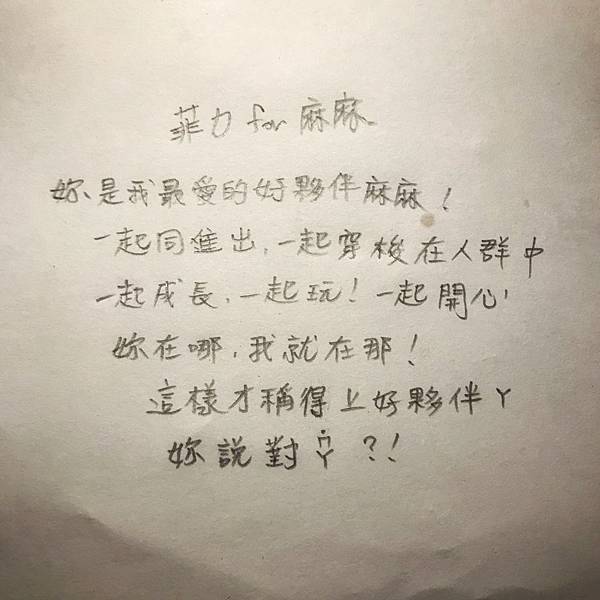 菲力 for 麻麻
妳是我最愛的好夥伴麻麻！
一起同進出，一起穿梭在人群中
一起成長，一起玩！一起開心，
妳在哪，我就在那！
這樣才稱得上好夥伴ㄚ
妳說對ㄇㄚ？！